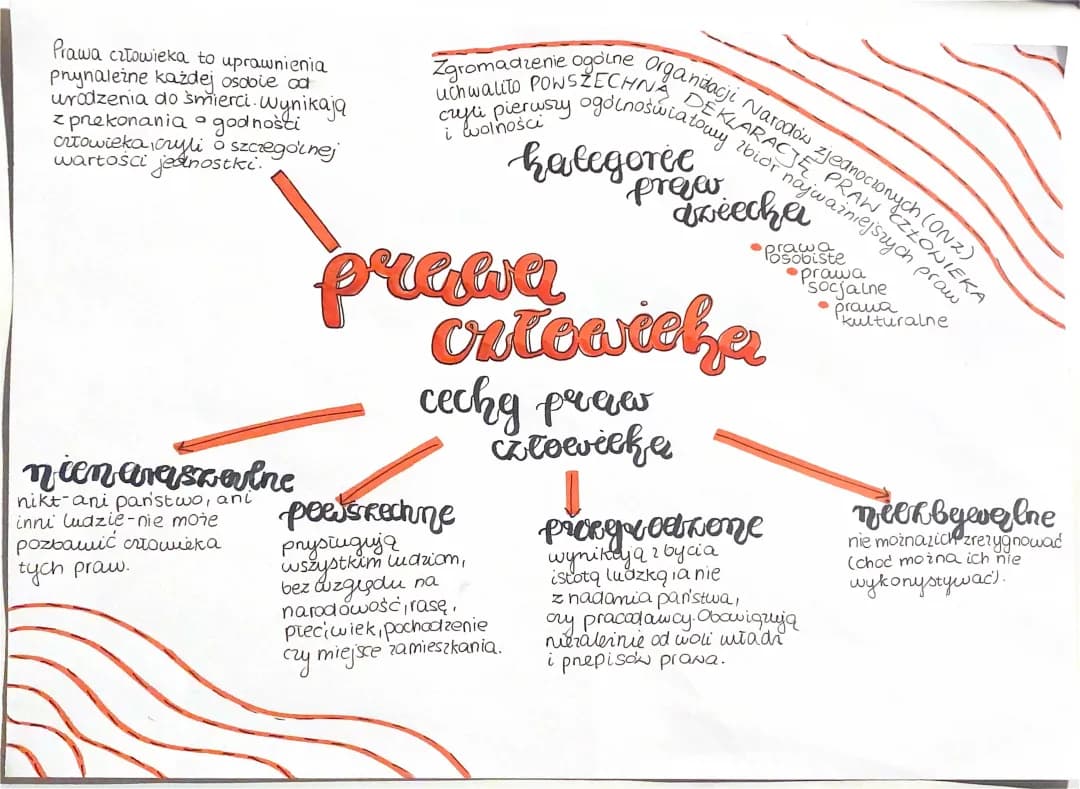 Prawa człowieka to uprawnienia
przynależne każdej osobie od
urodzenia do śmierci. Wynikają
z przekonania o godności
człowieka, czyli o szczególnej
wartości jednostki.
Zgromadzenie ogólne Organizacji Narodów zjednoczonych (ONZ)
uchwaliło POWSZECHNĄ DEKLARACJĘ PRAW CZŁOWIEKA
czyli pierwszy ogólnoświatowy zbiór najważniejszych praw
i wolności
kategorie
praw
dziecka
• prawa
osobiste
• prawa
socjalne
• prawa
kulturalne
prawa
człowieka
cechy praw
człowieka
nienaruszalne
nikt-ani państwo, ani
inni ludzie-nie może
pozbawić człowieka
tych praw.
powszechne
przysługują
wszystkim ludziom,
bez względu na
narodowość, rasę,
płeć, wiek, pochodzenie
czy miejsce zamieszkania.
przyrodzone
wynikają z bycia
istotą ludzką, a nie
z nadania państwa,
czy pracodawcy. Obowiązują
niezależnie od woli władzi
i przepisów prawa.
niezbywalne
nie można z ich zrezygnować
(choć można ich nie
wykorzystywać).